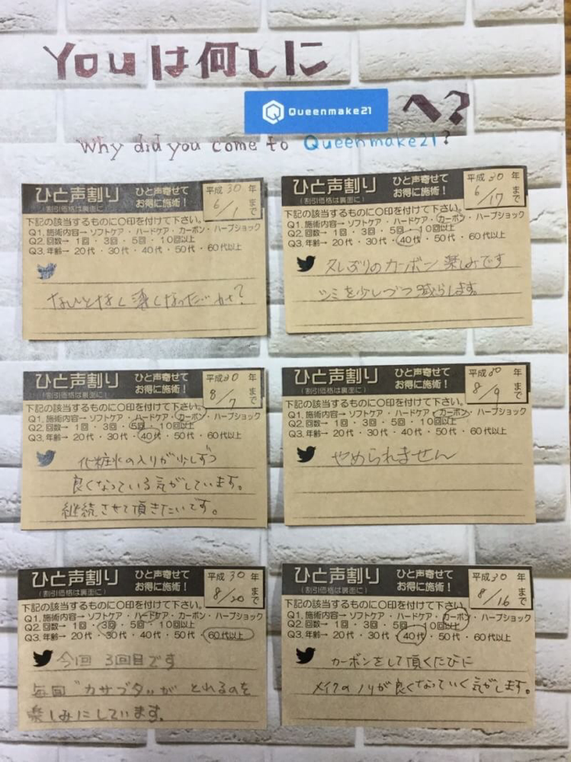 Youは何しに
Queenmake21
へ?
Why did you come to Queenmake21?
ひと声割り
(割引価格は裏面に)
ひと声寄せて
お得に施術!
平成30年
6/1まで
下記の該当するものに〇印を付けて下さい。
Q1.施術内容→ソフトケア・ハードケア・カーボン・ハーブショック
Q2.回数→1回・3回・5回・10回以上
Q3.年齢→20代・30代・40代・50代・60代以上
なんとなく薄くなったかも?
ひと声割り
(割引価格は裏面に)
ひと声寄せて
お得に施術!
平成30年
6/17まで
下記の該当するものに〇印を付けて下さい。
Q1.施術内容→ソフトケア・ハードケア・カーボン・ハーブショック
Q2.回数→1回・3回・5回・10回以上
Q3.年齢→20代・30代・40代・50代・60代以上
久しぶりのカーボン楽しみです
シミを少しづつ減らします
ひと声割り
(割引価格は裏面に)
ひと声寄せて
お得に施術!
平成30年
8/7まで
下記の該当するものに〇印を付けて下さい。
Q1.施術内容→ソフトケア・ハードケア・カーボン・ハーブショック
Q2.回数→1回・3回・5回・10回以上
Q3.年齢→20代・30代・40代・50代・60代以上
化粧水の入りが少しずつ
良くなっている気がしています。
継続させて頂きたいです。
ひと声割り
(割引価格は裏面に)
ひと声寄せて
お得に施術!
平成30年
8/9まで
下記の該当するものに〇印を付けて下さい。
Q1.施術内容→ソフトケア・ハードケア・カーボン・ハーブショック
Q2.回数→1回・3回・5回・10回以上
Q3.年齢→20代・30代・40代・50代・60代以上
やめられません
ひと声割り
(割引価格は裏面に)
ひと声寄せて
お得に施術!
平成30年
8/20まで
下記の該当するものに〇印を付けて下さい。
Q1.施術内容→ソフトケア・ハードケア・カーボン・ハーブショック
Q2.回数→1回・3回・5回・10回以上
Q3.年齢→20代・30代・40代・50代・60代以上
今回3回目です
毎回"カサブタ"がとれるのを
楽しみにしています。
ひと声割り
(割引価格は裏面に)
ひと声寄せて
お得に施術!
平成30年
8/16まで
下記の該当するものに〇印を付けて下さい。
Q1.施術内容→ソフトケア・ハードケア・カーボン・ハーブショック
Q2.回数→1回・3回・5回・10回以上
Q3.年齢→20代・30代・40代・50代・60代以上
カーボンをして頂くたびに
メイクのノリが良くなっていく気がします。